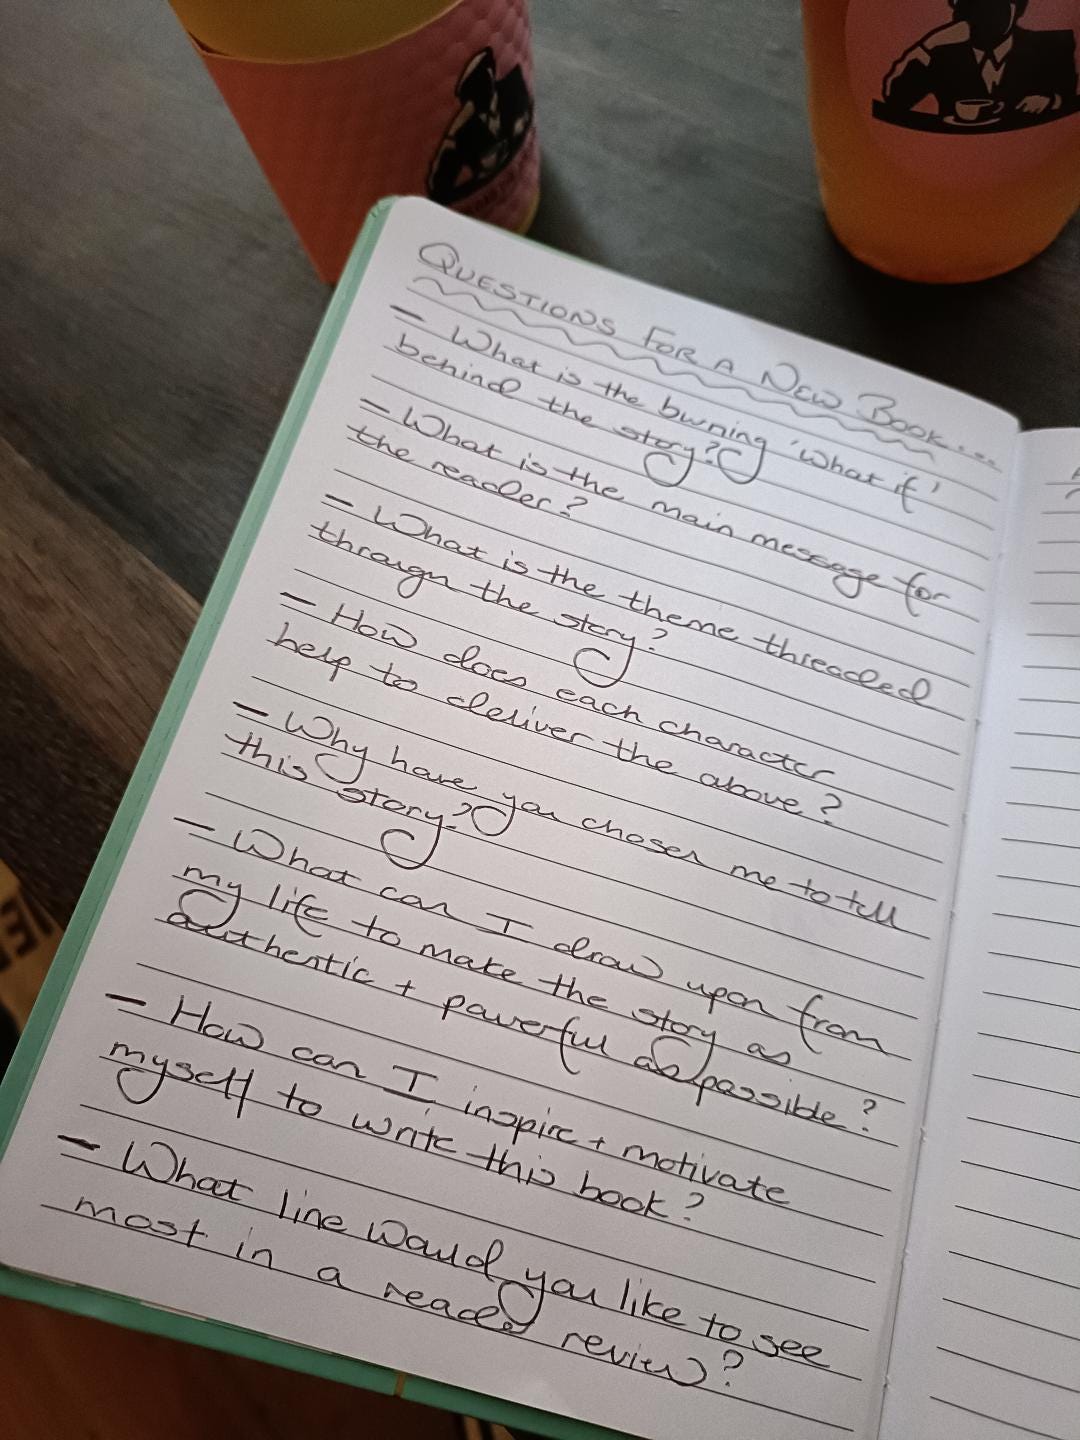 QUESTIONS FOR A NEW BOOK...
- What is the burning 'what if'
behind the story?
- What is the main message for
the reader?
- What is the theme threaded
through the story?
- How does each character
help to deliver the above?
- Why have you chosen me to tell
this story?
- What can I draw upon from
my life to make the story as
authentic + powerful as possible?
- How can I inspire + motivate
myself to write this book?
- What line would you like to see
most in a reader review?